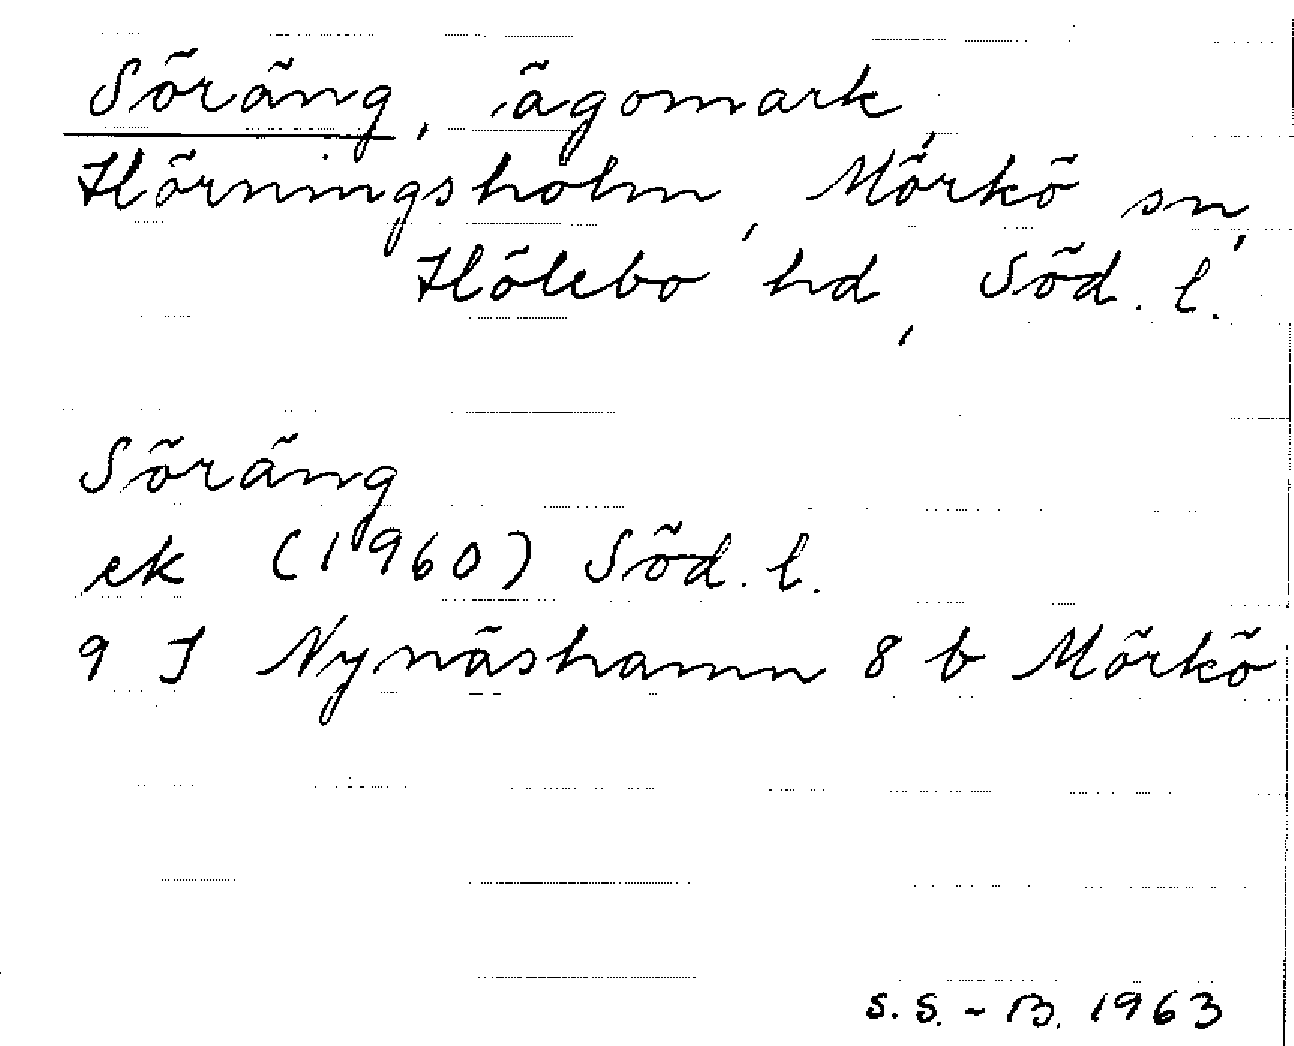 Söräng, ägomark,
Hörningsholm, Mörkö sn,
Hölebo hd, Söd. l.
Söräng
ek (1960) Söd. l.
9 I Nynäshamn 8 b Mörkö
S.S.-B. 1963